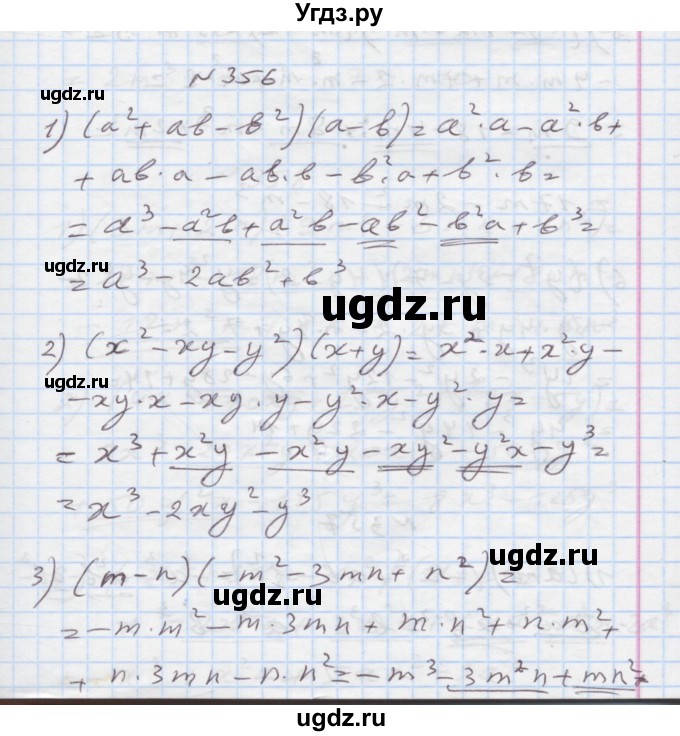 Угдз.ру
N 356
ugdz.ru
1) (a² + ab - b²)(a - b) = a²·a - a²·b +
+ ab·a - ab·b - b²·a + b²·b =
= a³ - a²b + a²b - ab² - b²a + b³ =
ugdz.ru
= a³ - 2ab² + b³
ugdz.ru
2) (x² - xy - y²)(x + y) = x²·x + x²·y -
ugdz.ru
- xy·x - xy·y - y²·x - y²·y =
= x³ + x²y - x²·y - xy² - y²x - y³ =
= x³ - 2xy² - y³
ugdz.ru
3) (m - n)(-m² - 3mn + n²) =
ugdz.ru
= -m·m² - m·3mn + m·n² + n·m² +
+ n·3mn - n·n² = -m³ - 3m²n + mn² +
ugdz.ru